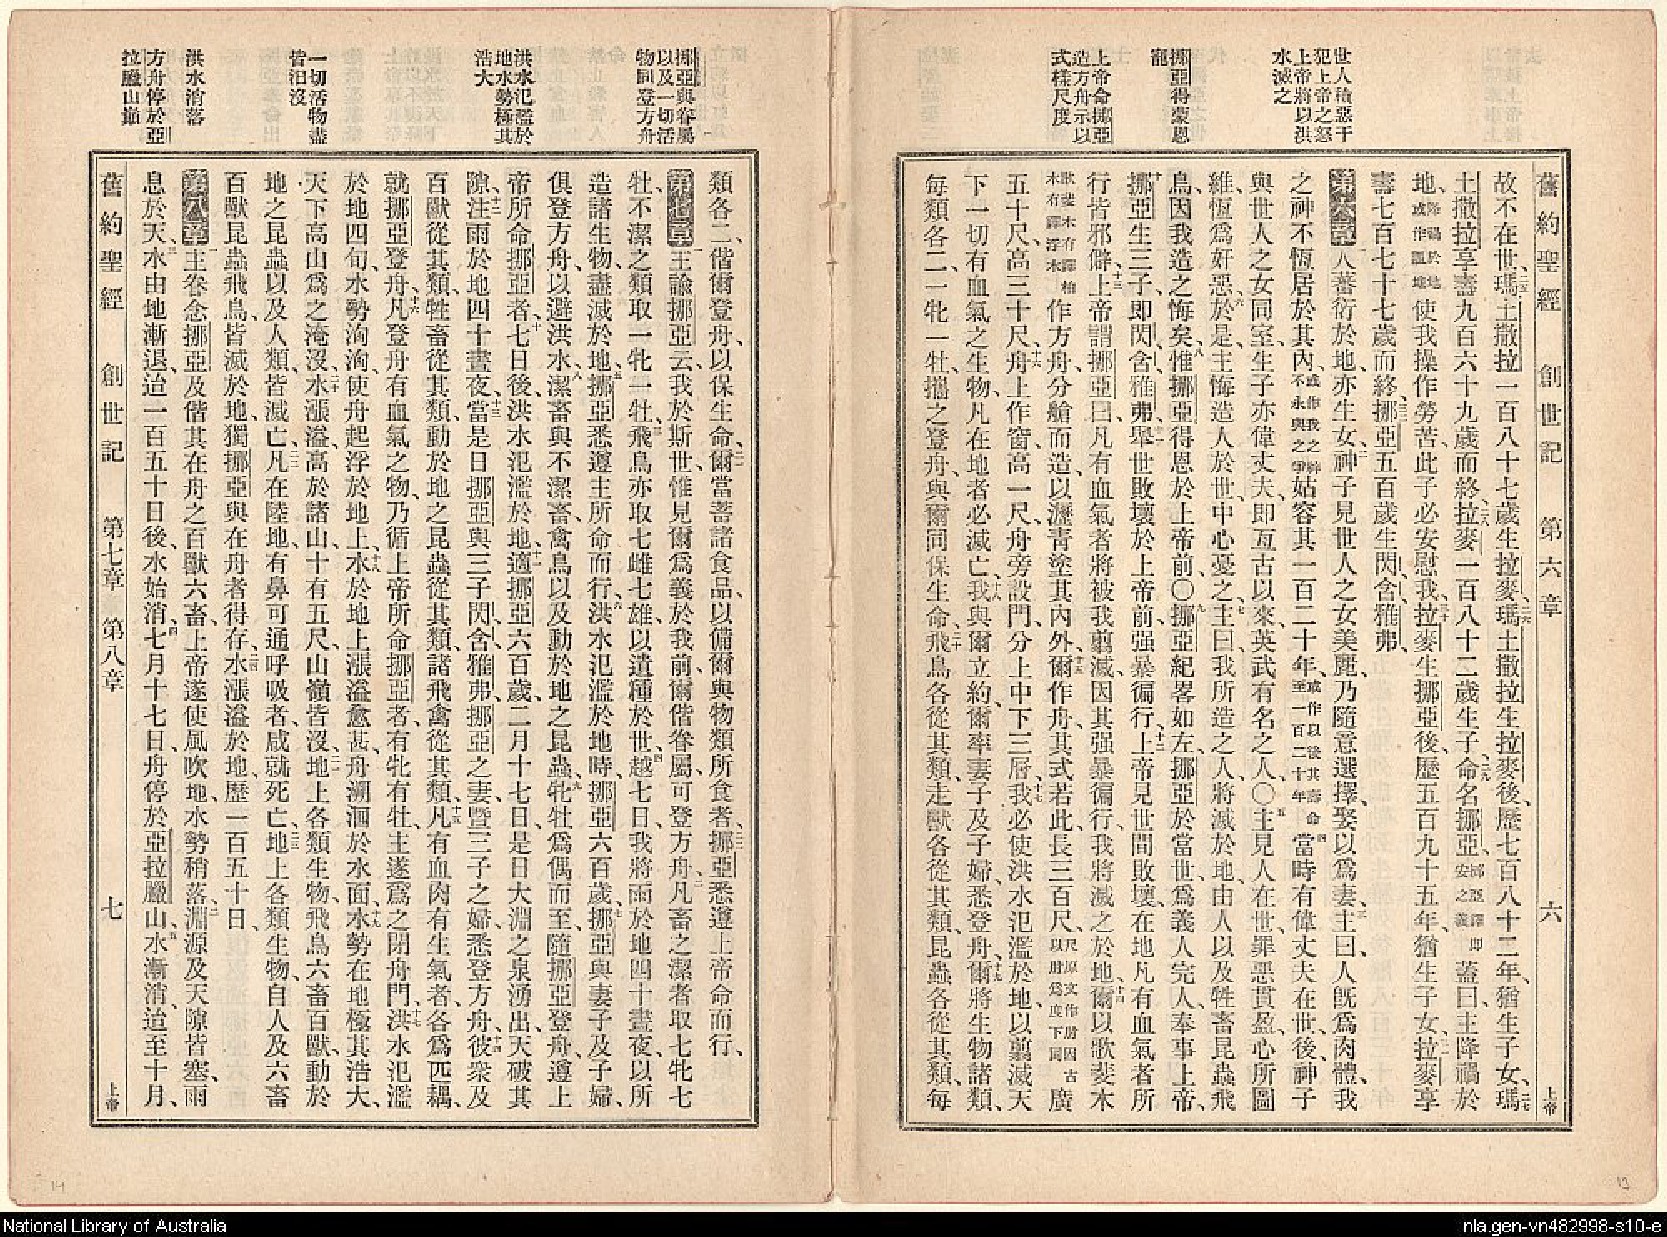 舊約聖經 創世記 第六章 六 上帝
世人積惡干
犯上帝之怒
上帝將以洪
水滅之
挪亞得蒙恩
寵
上帝命挪亞
造方舟示以
式樣尺度
故不在世、瑪土撒拉一百八十七歲生拉麥、瑪土撒拉生拉麥後、歷七百八十二年、猶生子女、瑪
土撒拉享壽九百六十九歲而終、拉麥一百八十二歲生子、命名挪亞、挪亞譯即安之義蓋曰、主降禍於
地、降禍於地或作詛地使我操作勞苦、此子必安慰我、拉麥生挪亞後、歷五百九十五年、猶生子女、拉麥享
壽七百七十七歲而終、挪亞五百歲生閃、含、雅弗、
第六章 人蕃衍於地、亦生女、神子見世人之女美麗、乃隨意選擇、娶以爲妻、主曰、人旣爲肉體、我
之神不恆居於其內、或作我之神不永與之爭姑容其一百二十年、或作以後其壽命至一百二十年當時有偉丈夫在世、後神子
與世人之女同室、生子亦偉丈夫、卽亙古以來英武有名之人、〇主見人在世罪惡貫盈、心所圖
維、恆爲奸惡、於是主悔造人於世、中心憂之、主曰、我所造之人、將滅於地、由人以及牲畜昆蟲飛
鳥、因我造之悔矣、惟挪亞得恩於上帝前、〇挪亞紀畧如左、挪亞於當世爲義人完人、奉事上帝、
挪亞生三子、卽閃、含、雅弗、舉世敗壞於上帝前、强暴徧行、上帝見世間敗壞、在地凡有血氣者所
行皆邪僻、上帝謂挪亞曰、凡有血氣者將被我翦滅、因其强暴徧行、我將滅之於地、爾以歌斐木
歌斐木有譯柏木有譯淨木作方舟、分艙而造、以瀝青塗其內外、爾作舟其式若此、長三百尺、尺原文作肘因古以肘爲度下同廣
五十尺、高三十尺、舟上作窗、高一尺、舟旁設門、分上中下三層、我必使洪水氾濫於地、以翦滅天
下一切有血氣之生物、凡在地者必滅亡、我與爾立約、爾率妻子及子婦、悉登舟、爾將生物諸類、
每類各二、一牝一牡、攜之登舟、與爾同保生命、飛鳥各從其類、走獸各從其類、昆蟲各從其類、每
挪亞與眷屬
以及一切活
物同登方舟
洪水氾濫於
地水勢極其
浩大
一切活物盡
皆汩沒
洪水消落
方舟停於亞
拉臘山巔
類各二、偕爾登舟、以保生命、爾當蓄諸食品、以備爾與物類所食者、挪亞悉遵上帝命而行、
第七章 主諭挪亞云、我於斯世、惟見爾爲義於我前、爾偕眷屬可登方舟、凡畜之潔者取七牝七
牡、不潔之類、取一牝一牡、飛鳥亦取七雌七雄、以遺種於世、越七日、我將雨於地四十晝夜、以所
造諸生物、盡滅於地、挪亞悉遵主所命而行、洪水氾濫於地時、挪亞六百歲、挪亞與妻子及子婦、
俱登方舟、以避洪水、潔畜與不潔畜禽鳥、以及動於地之昆蟲、牝牡爲偶而至、隨挪亞登舟、遵上
帝所命挪亞者、七日後、洪水氾濫於地、適挪亞六百歲、二月十七日、是日大淵之泉湧出、天破其
隙、注雨於地四十晝夜、當是日挪亞與三子閃、含、雅弗、挪亞之妻、曁三子之婦、悉登方舟、彼衆及
百獸從其類、牲畜從其類、動於地之昆蟲從其類、諸飛禽從其類、凡有血肉有生氣者、各爲匹耦、
就挪亞登舟、凡登舟有血氣之物、乃循上帝所命挪亞者、有牝有牡、主遂爲之閉舟門、洪水氾濫
於地四旬、水勢洶洶、使舟起、浮於地上、水於地上漲溢愈甚、舟溯洄於水面、水勢在地極其浩大、
天下高山爲之淹沒、水漲溢、高於諸山十有五尺、山嶺皆沒、地上各類生物、飛鳥六畜百獸、動於
地之昆蟲、以及人類、皆滅亡、凡在陸地有鼻可通呼吸者、咸就死亡、地上各類生物、自人及六畜
百獸昆蟲飛鳥、皆滅於地、獨挪亞與在舟者得存、水漲溢於地、歷一百五十日、
第八章 主眷念挪亞、及偕其在舟之百獸六畜、上帝遂使風吹地、水勢稍落、淵源及天隙皆塞、雨
息於天、水由地漸退、迨一百五十日後、水始消、七月十七日、舟停於亞拉臘山、水漸消、迨至十月、
舊約聖經 創世記 第七章 第八章 七 上帝
National Library of Australia
nla.gen-vn482998-s10-e